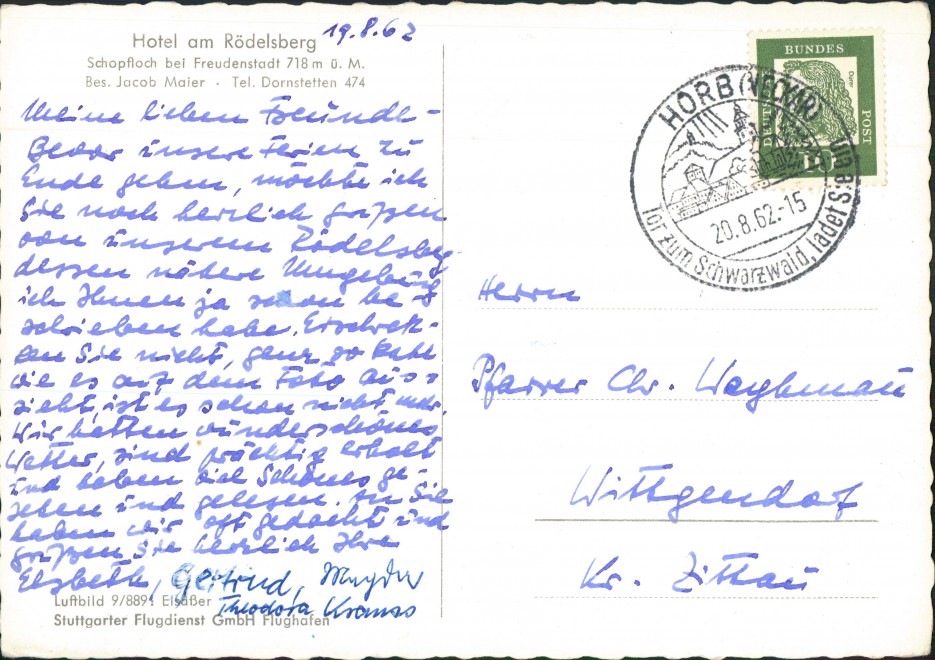 19.8.62
Hotel am Rödelsberg
Schopfloch bei Freudenstadt 718 m ü. M.
Bes. Jacob Maier · Tel. Dornstetten 474
Meine lieben Freunde -
Bevor unsere Ferien zu
Ende gehen, möchte ich
Sie noch herzlich grüßen
von unserem Rödelsberg
dessen nähere Umgebung
ich Ihnen ja schon be-
schrieben habe. Erschrek-
ken Sie nicht, ganz so kahl
wie es auf dem Foto aus-
sieht, ist es schon nicht mehr.
Wir hatten wunderschönes
Wetter, sind prächtig erholt
und haben viel Schönes ge-
sehen und gelesen. An Sie
haben wir oft gedacht und
grüßen Sie herzlich Ihre
Elsbeth, Gertrud, Magda
Theodora Krauss
Luftbild 9/8891 Elsäßer
Stuttgarter Flugdienst GmbH Flughafen
BUNDES
POST
HORB (NECKAR)
20.8.62.-15
Tor zum Schwarzwald, ladet Sie ein
Herrn
Pfarrer Chr.
Wittgendorf
Kr. Zittau